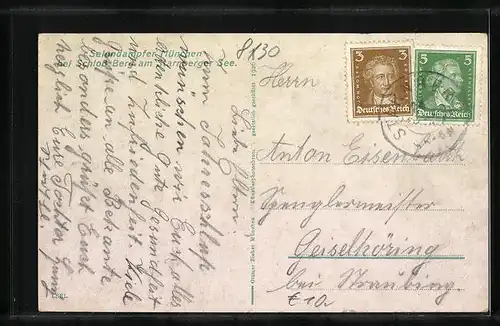 Salondampfer München
bei Schloß Berg am Starnberger See.
8130
3 3
Deutsches Reich
5 5
Deutsches Reich
Herrn
Anton Eisenbarth
Spenglermeister
Geiselhöring
bei Straubing.
€10
Liebe Eltern!
Zum Jahresschluß
wünschen wir Euch alles
erdenkliche Gute Gesundheit
und Zufriedenheit. Viele
Grüße an alle Bekannte
besonders grüßt Euch
Eure Tochter Fanny